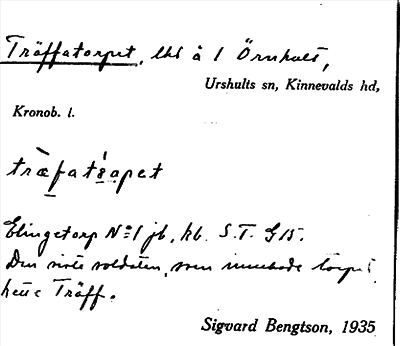 Träffatorpet, lht å 1 Örnhult,
Urshults sn, Kinnevalds hd,
Kronob. l.
træfatɷrpet
Elingetorp No 1 jb, kb. S.T. G15.
Den siste soldaten, som innehade torpet,
hette Träff.
Sigvard Bengtson, 1935